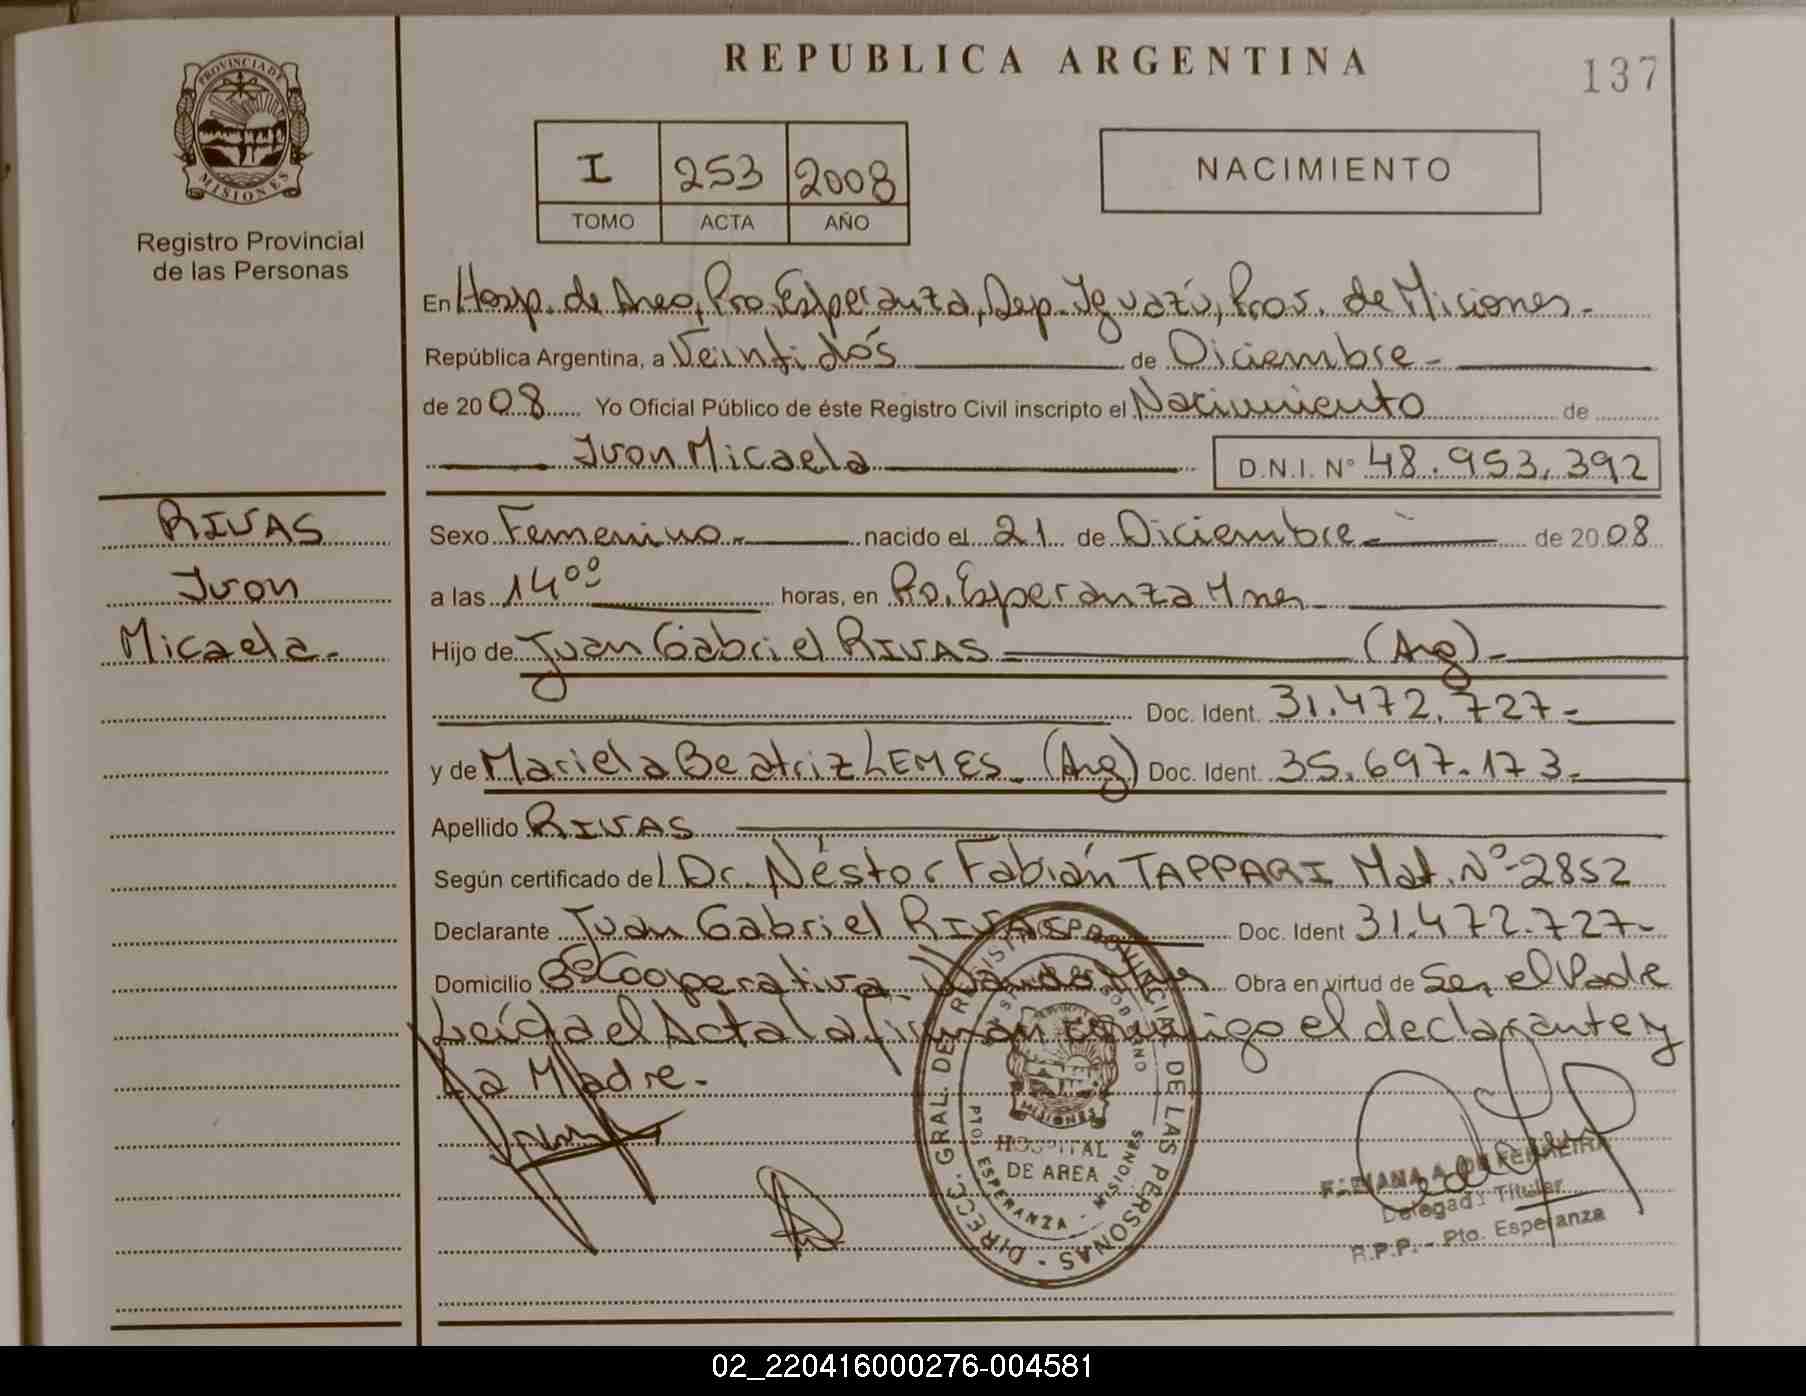 REPUBLICA ARGENTINA
137
PROVINCIA DE
MISIONES
Registro Provincial
de las Personas
I 253 2008
TOMO ACTA AÑO
NACIMIENTO
En Hosp. de Area, Pto. Esperanza, Dep. Iguazú, Prov. de Misiones.
República Argentina, a Veintidós de Diciembre
de 2008 Yo Oficial Público de éste Registro Civil inscripto el Nacimiento de
Ivon Micaela D.N.I. N° 48.953.392
RIVAS
Ivon
Micaela.
Sexo Femenino nacido el 21 de Diciembre de 2008
a las 14⁰⁰ horas, en Pto. Esperanza Mnes
Hijo de Juan Gabriel RIVAS (Arg)
Doc. Ident. 31.472.727
y de Mariela Beatriz LEMES (Arg) Doc. Ident. 35.697.173
Apellido RIVAS
Según certificado del Dr. Néstor Fabián TAPPARI Mat. N° 2852
Declarante Juan Gabriel RIVAS Doc. Ident 31.472.727
Domicilio B° Cooperativa. Wanda Mnes Obra en virtud de Ser el Padre
Leída el Acta la firman conmigo el declarante y
La Madre.
DIRECC. GRAL. DEL REGISTRO PROVINCIAL DE LAS PERSONAS
MISIONES
HOSPITAL
DE AREA
PTO. ESPERANZA - MISIONES
A. DE FERREIRA
Delegada Titular
R.P.P. - Pto. Esperanza
02_220416000276-004581